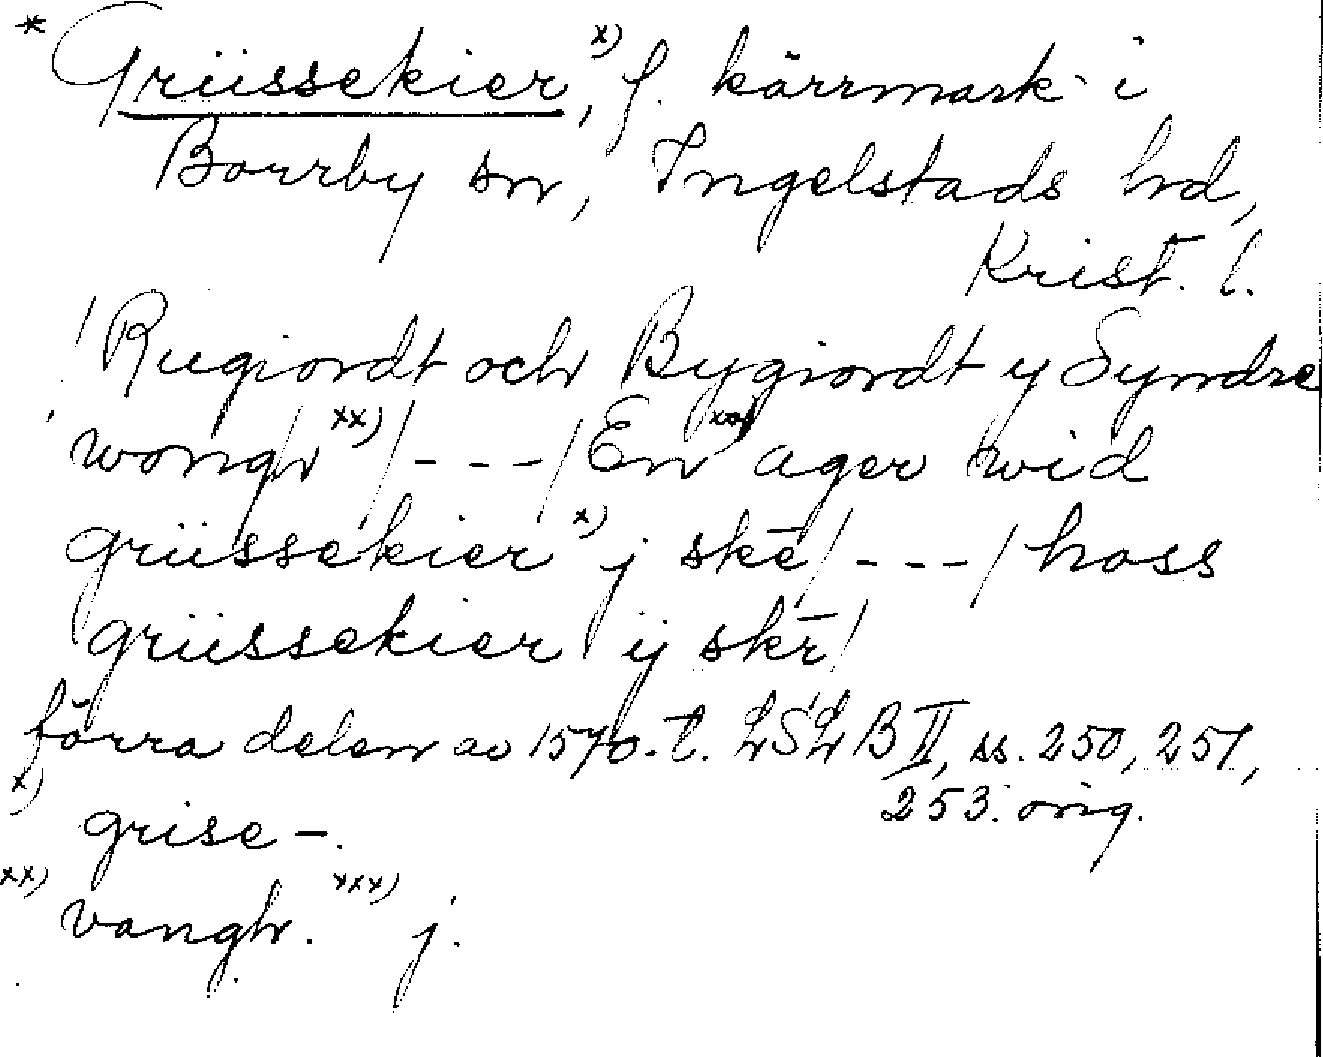 * Grüssekier, x) f. kärrmark i
Borrby sn, Ingelstads hd,
Krist. l.
/Rugiordt och Bygiordt y Syndre
wongh xx) /---/ En xxx) ager wid
grüssekier x) j skē /---/ hoss
grüssekier ij skr̄/
förra delen av 1570-t. LSLB II, ss. 250, 251,
253. orig.
x) grise-.
xx) vangh. xxx) j.